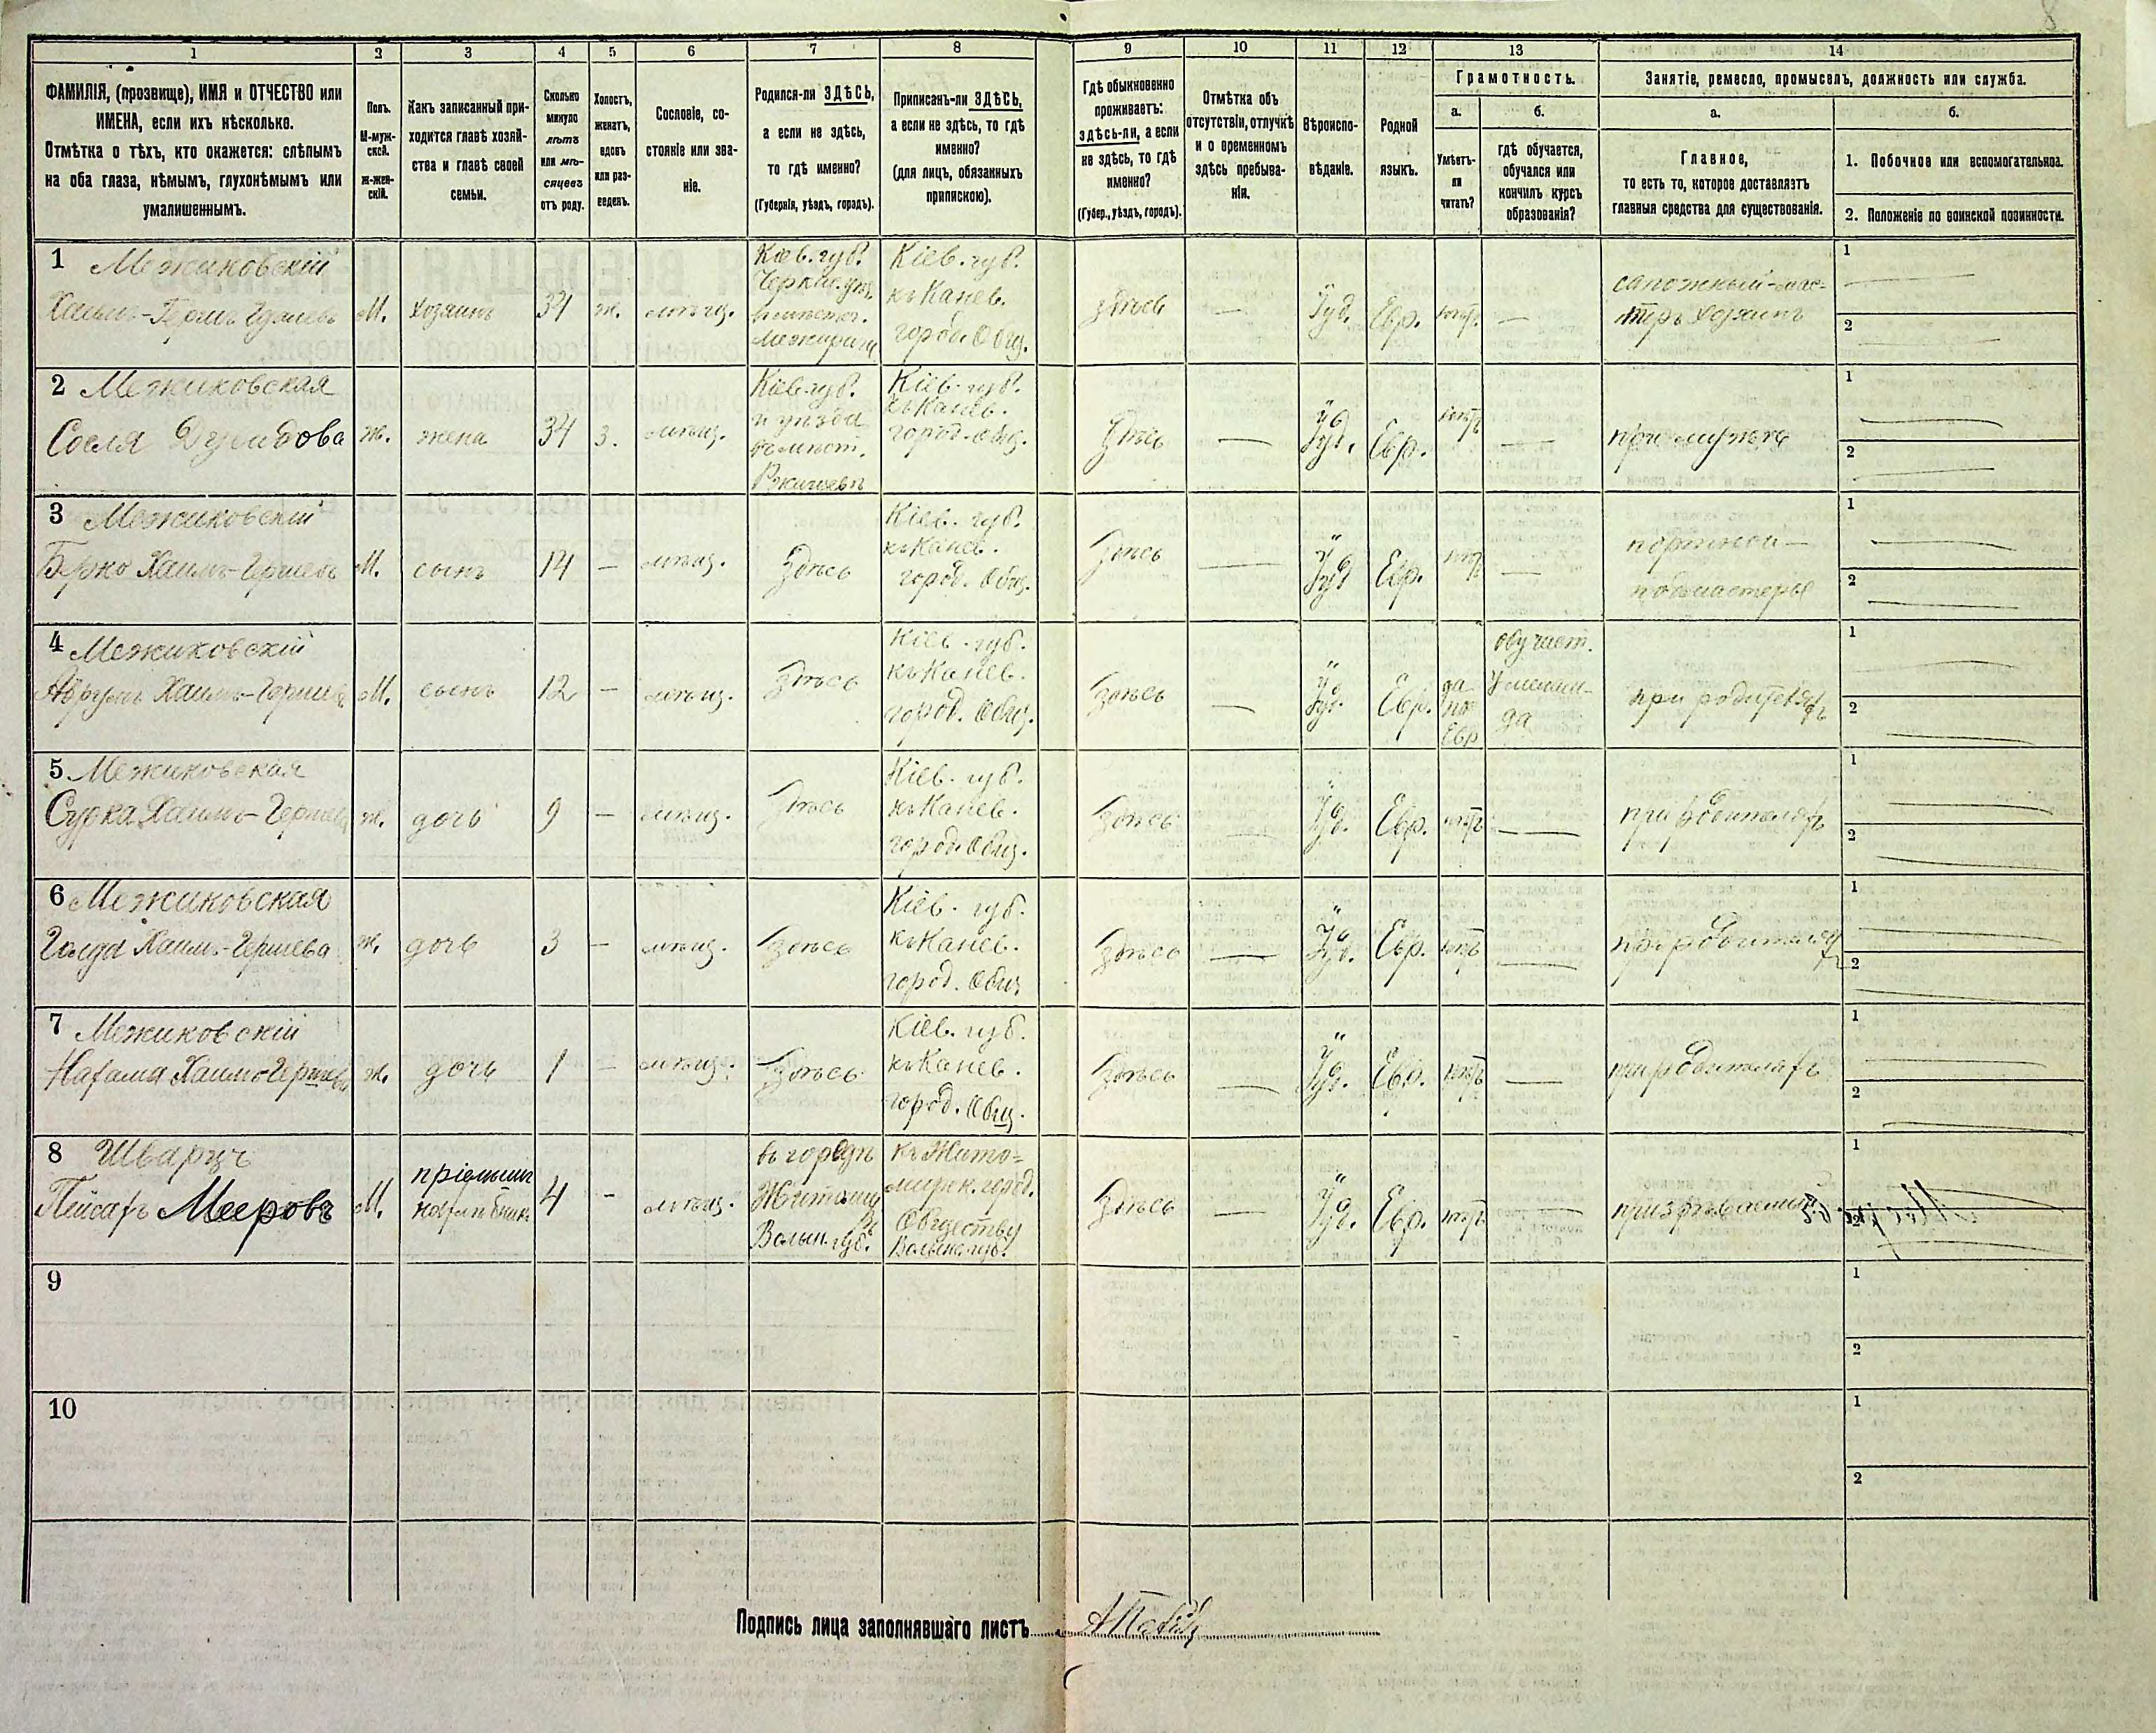 8
1 2 3 4 5 6 7 8 9 10 11 12 13 14
ФАМИЛІЯ, (прозвище), ИМЯ и ОТЧЕСТВО или
ИМЕНА, если ихъ нѣсколько.
Отмѣтка о тѣхъ, кто окажется: слѣпымъ
на оба глаза, нѣмымъ, глухонѣмымъ или
умалишеннымъ.
Полъ.
М-муж-
ской.
Ж-жен-
скій.
Какъ записанный при-
ходится главѣ хозяй-
ства и главѣ своей
семьи.
Сколько
минуло
лѣтъ
или мѣ-
сяцевъ
отъ роду.
Холостъ,
женатъ,
вдовъ
или раз-
веденъ.
Сословіе, со-
стояніе или зва-
ніе.
Родился-ли ЗДѢСЬ,
а если не здѣсь,
то гдѣ именно?
(Губернія, уѣздъ, городъ).
Приписанъ-ли ЗДѢСЬ,
а если не здѣсь, то гдѣ
именно?
(для лицъ, обязанныхъ
припискою).
Гдѣ обыкновенно
проживаетъ:
здѣсь-ли, а если
не здѣсь, то гдѣ
именно?
(Губер., уѣздъ, городъ).
Отмѣтка объ
отсутствіи, отлучкѣ
и о временномъ
здѣсь пребыва-
ніи.
Вѣроиспо-
вѣданіе.
Родной
языкъ.
Грамотность.
а.
Умѣетъ-
ли
читать?
б.
гдѣ обучается,
обучался или
кончилъ курсъ
образованія?
Занятіе, ремесло, промыселъ, должность или служба.
а.
Главное,
то есть то, которое доставляетъ
главныя средства для существованія.
б.
1. Побочное или вспомогательное.
2. Положеніе по воинской повинности.
1 Межиковскій
М. хозяинъ 34 ж. мѣщ.
Кіев. губ.
Кіев. губ.
къ Канев.
город. Общ.
здѣсь — Іуд. Евр. —
сапожный мас-
теръ хозяинъ
1
2
2 Межиковская
Сосля
ж. жена 34 з. мѣщ.
Кіев. губ.
и уѣзда
Ржищевъ
Кіев. губ.
къ Канев.
город. общ.
Здѣсь — Іуд. Евр. —
при мужѣ
1
2
3 Межиковскій
Берко Хаимъ-Гершевъ
М. сынъ 14 — мѣщ. Здѣсь
Кіев. губ.
къ Канев.
город. Общ.
Здѣсь — Іуд Евр. —
портной —
подмастерье
1
2
4 Межиковскій
Аврумъ Хаимъ-Гершевъ
М. сынъ 12 — мѣщ. Здѣсь
Кіев. губ.
къ Канев.
город. Общ.
Здѣсь — Іуд. Евр.
да
по
Евр
обучает.
У мелам-
да
при родителяхъ
1
2
5 Межиковская
Сурка Хаимъ-Гершева
ж. дочь 9 — мѣщ. Здѣсь
Кіев. губ.
къ Канев.
город. Общ.
Здѣсь — Іуд. Евр. —
при родителяхъ
1
2
6 Межиковская
Голда Хаимъ-Гершева
ж. дочь 3 — мѣщ. Здѣсь
Кіев. губ.
къ Канев.
город. Общ.
Здѣсь — Іуд. Евр. —
при родителяхъ
1
2
7 Межиковскій
Нахама Хаимъ-Гершева
ж. дочь 1 — мѣщ. Здѣсь
Кіев. губ.
къ Канев.
город. Общ.
Здѣсь — Іуд. Евр. —
при родителяхъ
1
2
8 Шварцъ
Пейсахъ Мееровъ
М. 4 — мѣщ.
въ городѣ
Житомир
ѣ
Волын. губ.
къ Жито-
мирск. город.
Обществу
Волынс. губ.
Здѣсь — Іуд. Евр. —
призрѣваемый
1
2
9
1
2
10
1
2
Подпись лица заполнявшаго листъ